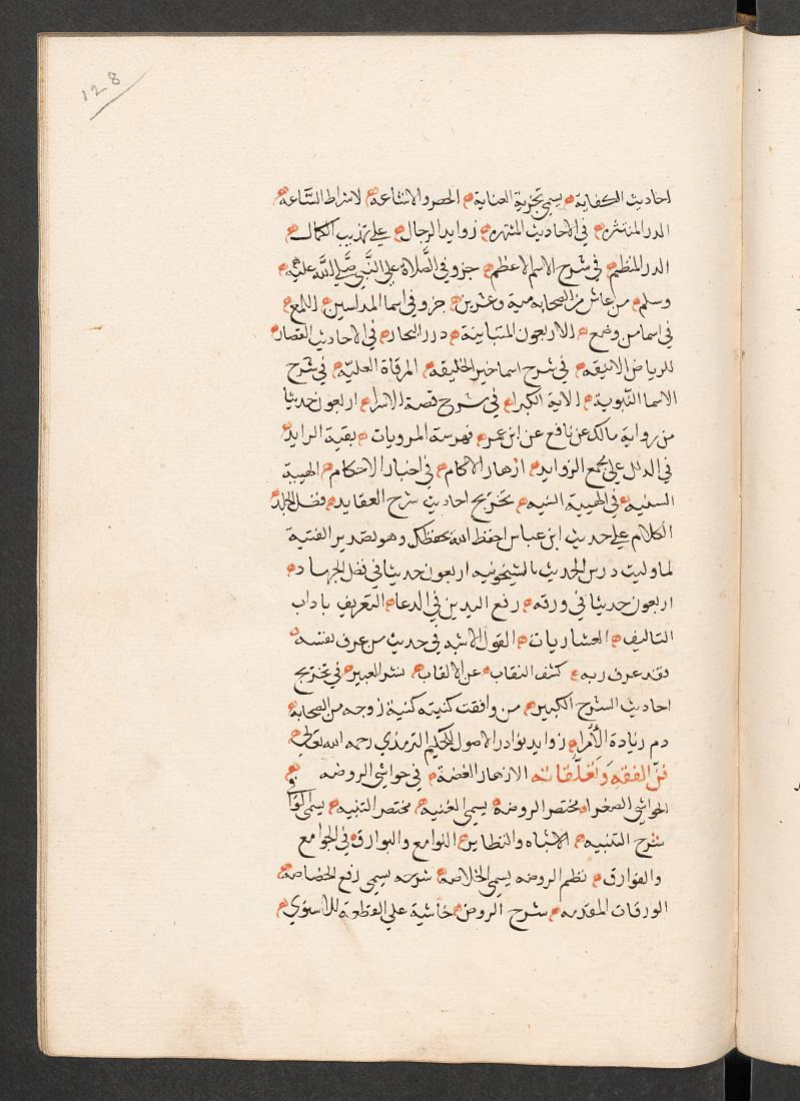 128
احاديث الكفاية يسمى تجزية العناية الحصر والاشاعة لاشراط السّاعة
الدر المنتثره في الاحاديث المشتهره زوايد الرجال على تهذيب الكمال
الدر المنظم في شرح الاسم الاعظم جزو في الصَّلاة على النَّبي صَلَّى اللَّه عليه
وسلم من عاش من الصحابه مية وعشرين جزو في اسما المدلسين اللمع
في اسما من وضع الاربعون المتباينة درر البحار في الاحاديث القصار
للرياض الانيقه في شرح اسما خير الخليقه المرقاة العليّه في شرح
الاسما النّبوية الاية الكبرا في شرح قصة الاسرا اربعون حديثا
من رواية مالك عن نافع عن ابن عمر فهرسة المرويات بقية الرايد
في الذيل على مجمع الزوايد ازهار الاكام في اخبار الاحكام الهيبة
السنيه في الهيية السنيه تخريج احاديث شرح العقايد فضل الجلد
الكلام على حديث ابن عباس احفظ الله يحفظك وهو تصدير الفتية
لما وليت درس الحديث بالشيخونيه اربعون حديثا في فضل الجهاد
اربعون حديثا في ورقه رفع اليدين في الدعا التعريف باداب
التاليف العشاريات القول الاشبه في حديث من عرف نفسه
فقد عرف ربه كشف النقاب عن الالقاب نشر العبير في تخريج
احاديث الشرح الكبير من وافقت كنيته كنية زوجه من الصحابة
ذم زيادة الأُمرا زوايد نوادر الاصول للحكيم الترمذي رحمه الله تعالى
فنّ الفقه وَتعلّقاته الازهار الغضة في حواشي الروضه
الحواشي الصغرا مختصر الروضه يسمى الغنيه مختصر التنبيه يسمى الوافي
شرح التنبيه الاشباه والنظاير النوامع والبوارق في الجوامع
والفوارق نظم الروضه يسمى الخلاصه شرحه يسمى رفع الخصاصه
الورقات المقدمه شرح الروض حاشية على القطعة للاسنوي